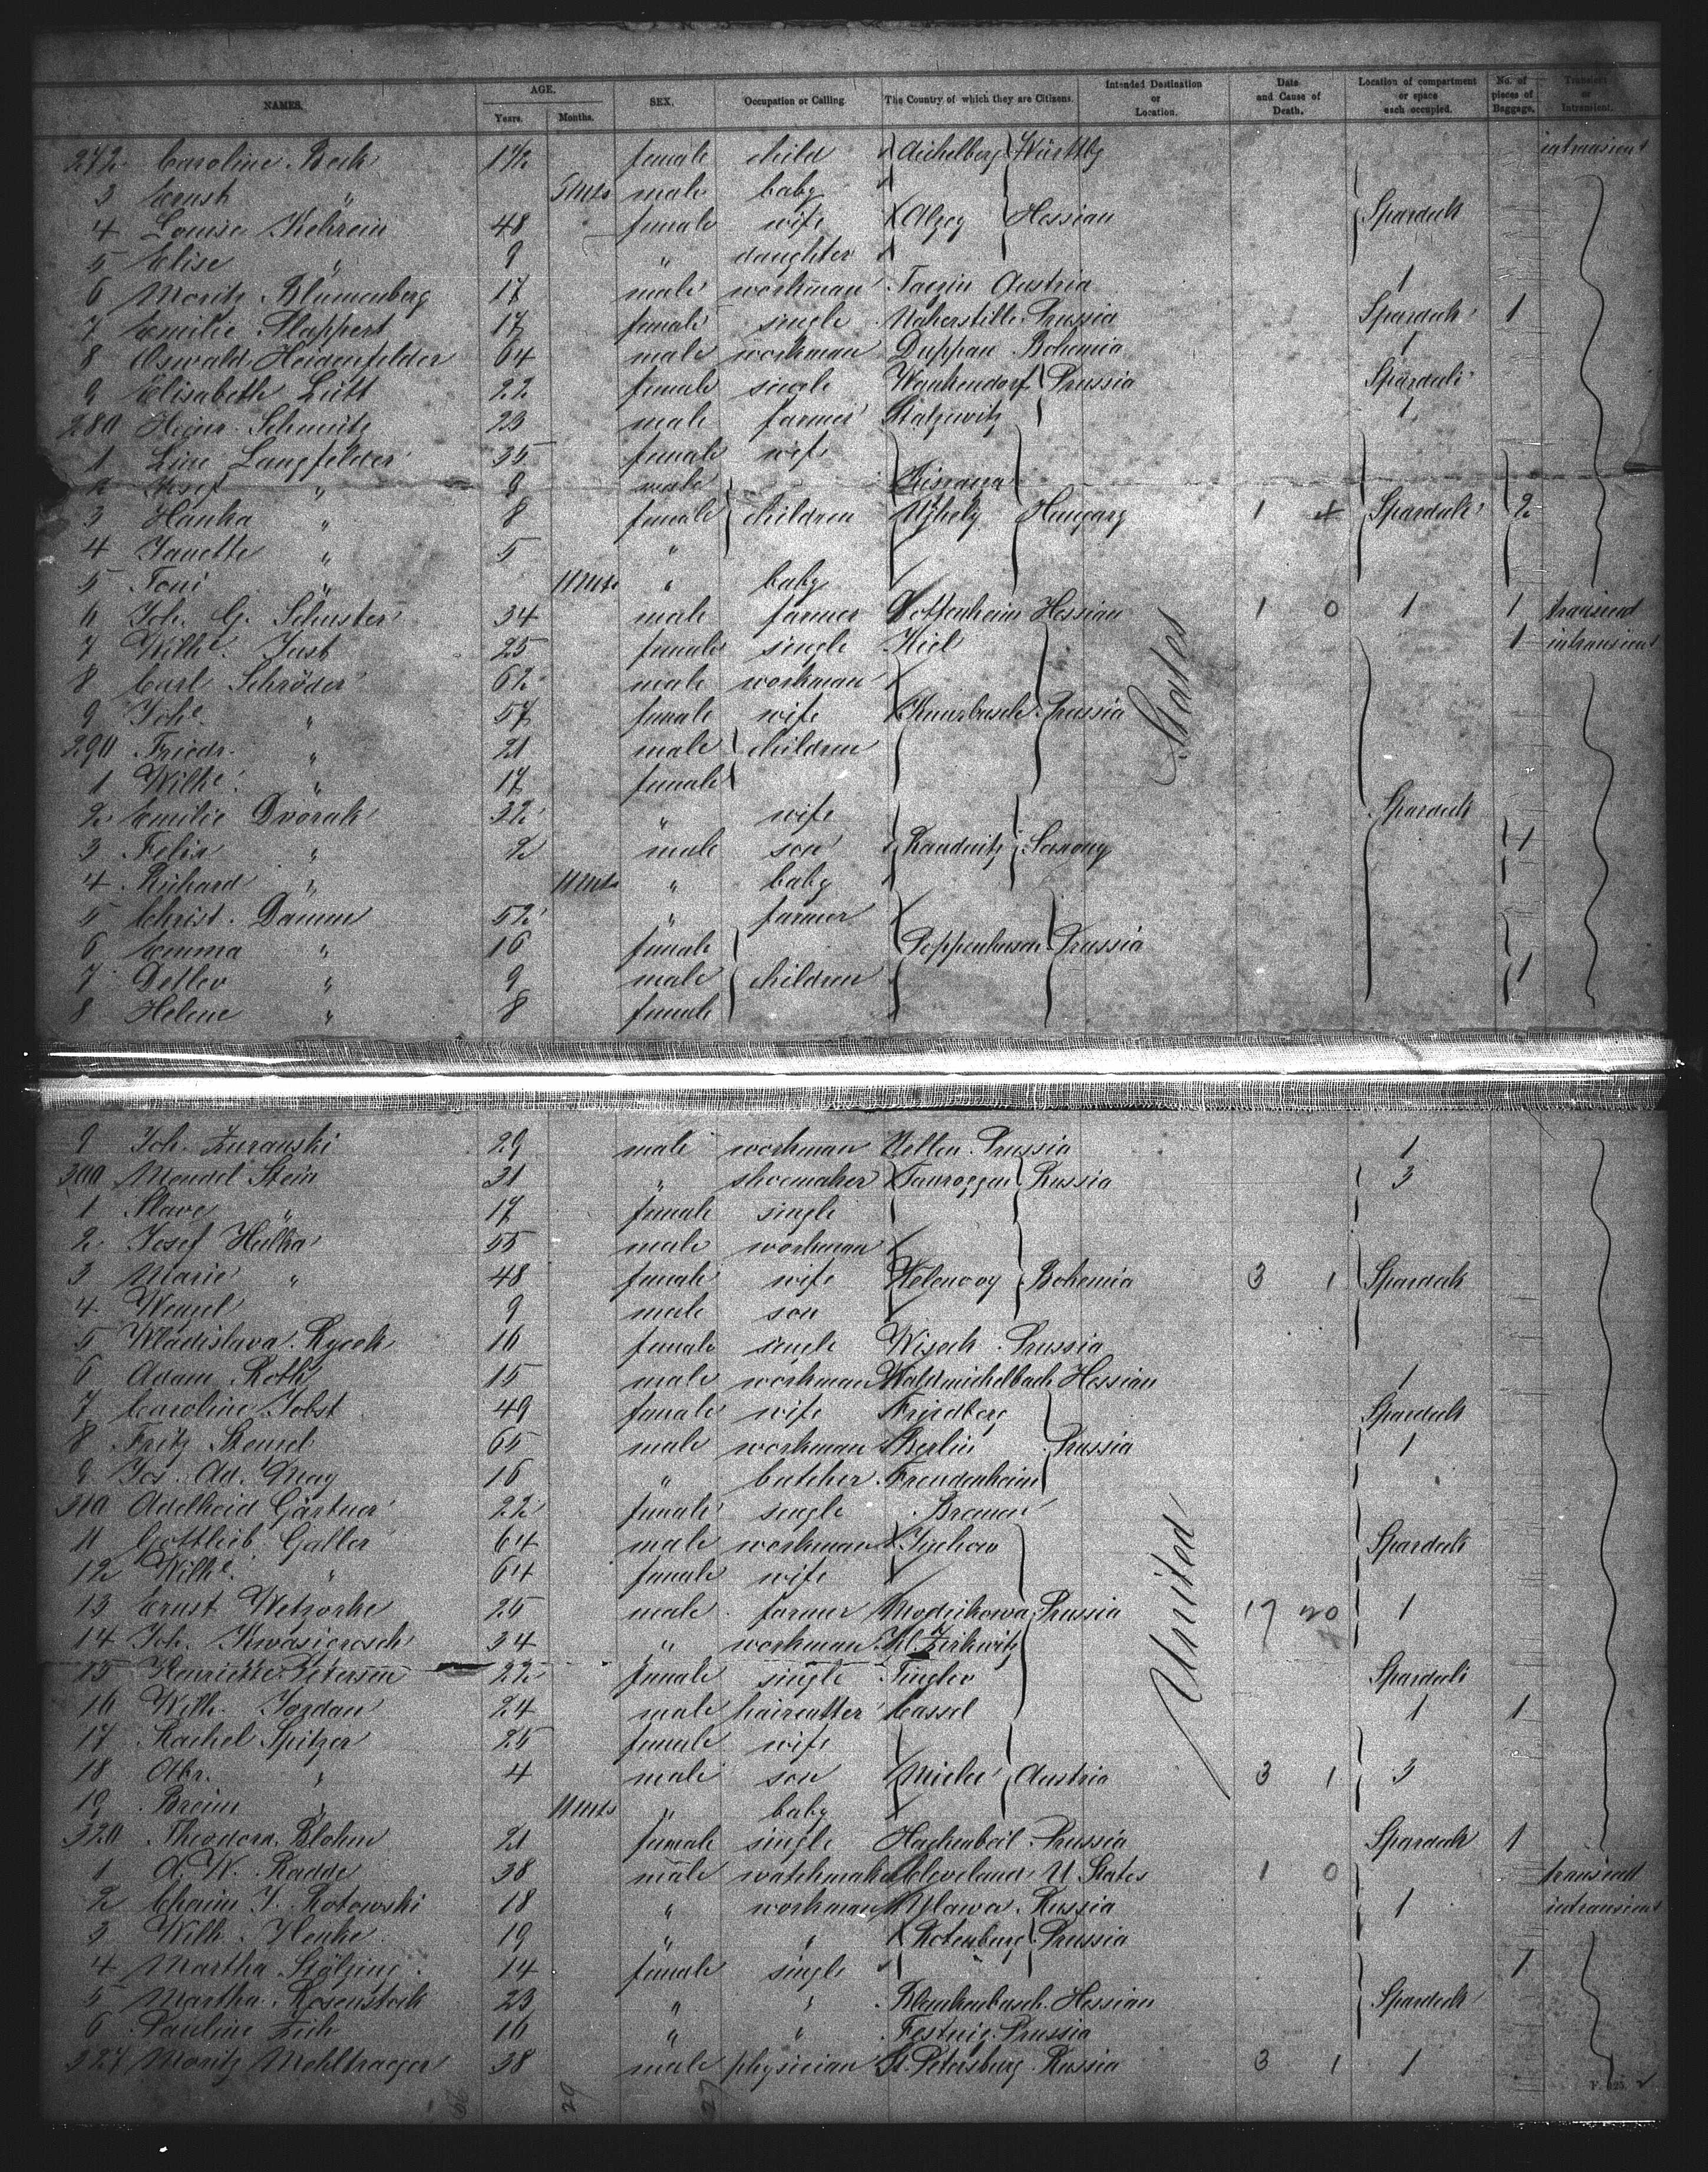 NAMES. AGE. Years. Months. SEX. Occupation or Calling The Country of which they are Citizens. Intended Destination or Location. Date and Cause of Death. Location of compartment or space each occupied. No. of pieces of Baggage. Transient or Intransient.
272 Caroline Beck 1½ female child Aichelberg Württbg intransient
3 Ernst " 5 Mts male baby
4 Louise Kehrein 48 female wife Alzey Hessian Spardeck
5 Elise " 9 " daughter
6 Moritz Blumenberg 17 male workman Austria 1
7 Emilie Stappert 17 female single Prussia Spardeck 1
8 Oswald Heidenfelder 64 male workman Duppau Bohemia 1
9 Elisabeth Lütt 22 female single Wankendorf Prussia Spardeck
280 Heinr. Schmütz 23 male farmer 1
1 Line Langfelder 35 female wife
2 Josef " 9 male
3 Hanka " 8 female children Ujhely Hungary 1 4 Spardeck 2
4 Janette " 5 "
5 Toni " 11 Mts " baby
6 Joh. G. Schuster 34 male farmer Hessian 1 0 1 1 transient
7 Wilhe. Just 25 female single Kiel 1 intransient
8 Carl Schröder 62 male workman
9 Johe. " 57 female wife Prussia
290 Friedr. " 21 male children
1 Wilhe. " 17 female
2 Emilie Dvorak 32 " wife Spardeck
3 Felix " 2 male son Raudnitz Saxony 1
4 Richard " 11 Mts " baby
5 Christ. Damm 52 " farmer
6 Emma " 16 female Poppenhusen Prussia
7 Detlev " 9 male children 1
8 Helene " 8 female
States
9 Joh. Zuranski 29 male workman Prussia 1
300 Mendel Stein 31 " shoemaker Tauroggen Russia 3
1 Slave " 17 female single
2 Josef Hulka 55 male workman
3 Marie " 48 female wife Bohemia 3 1 Spardeck
4 Wenzel 9 male son
5 Wladislava Rycek 16 female single Wiseck Prussia
6 Adam Roth 15 male workman Waldmichelbach Hessian 1
7 Caroline Jobst 49 female wife Friedberg Spardeck
8 Fritz Stensel 65 male workman Berlin Prussia 1
9 Jos. Ad. May 16 " butcher Freudenheim
310 Adelheid Gärtner 22 female single Bremen
11 Gottlieb Galler 64 male workman Tychow Spardeck
12 Wilhe. " 64 female wife
13 Ernst Wetzorke 25 male farmer Prussia 17 20 1
14 Joh. 34 " workman Kl. Zirkwitz
15 Henriette Petersen 22 female single Tinglev Spardeck
16 Wilh. Jordan 24 male haircutter Cassel 1 1
17 Rachel Spitzer 25 female wife
18 Abr. " 4 male son Mielec Austria 3 1 3
19 Breim " 11 Mts " baby
320 Theodora Blohm 21 female single Prussia Spardeck 1
1 A. W. Radde 38 male watchmaker Cleveland U States 1 0 transient
2 Chaim J. Kotowski 18 " workman Mlawa Russia 1 intransient
3 Wilh. Henke 19 " " Rotenburg Prussia
4 Martha Stölzing 14 female single 1
5 Martha Rosenstock 23 " " Hessian Spardeck
6 Pauline 16 " " Prussia
327 Moritz Mehltraeger 38 male physician St. Petersburg Russia 3 1 1
United
29 27